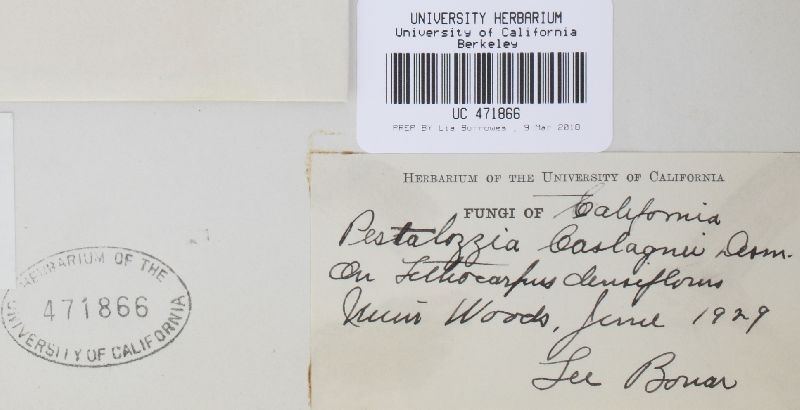 UNIVERSITY HERBARIUM
University of California
Berkeley
UC 471866
PREP BY Lia Borrowes , 9 Mar 2018
HERBARIUM OF THE UNIVERSITY OF CALIFORNIA
FUNGI OF California
Pestalozzia Castagnei Desm.
On Lithocarpus densiflorus
Muir Woods, June 1929
Lee Bonar
HERBARIUM OF THE
471866
UNIVERSITY OF CALIFORNIA